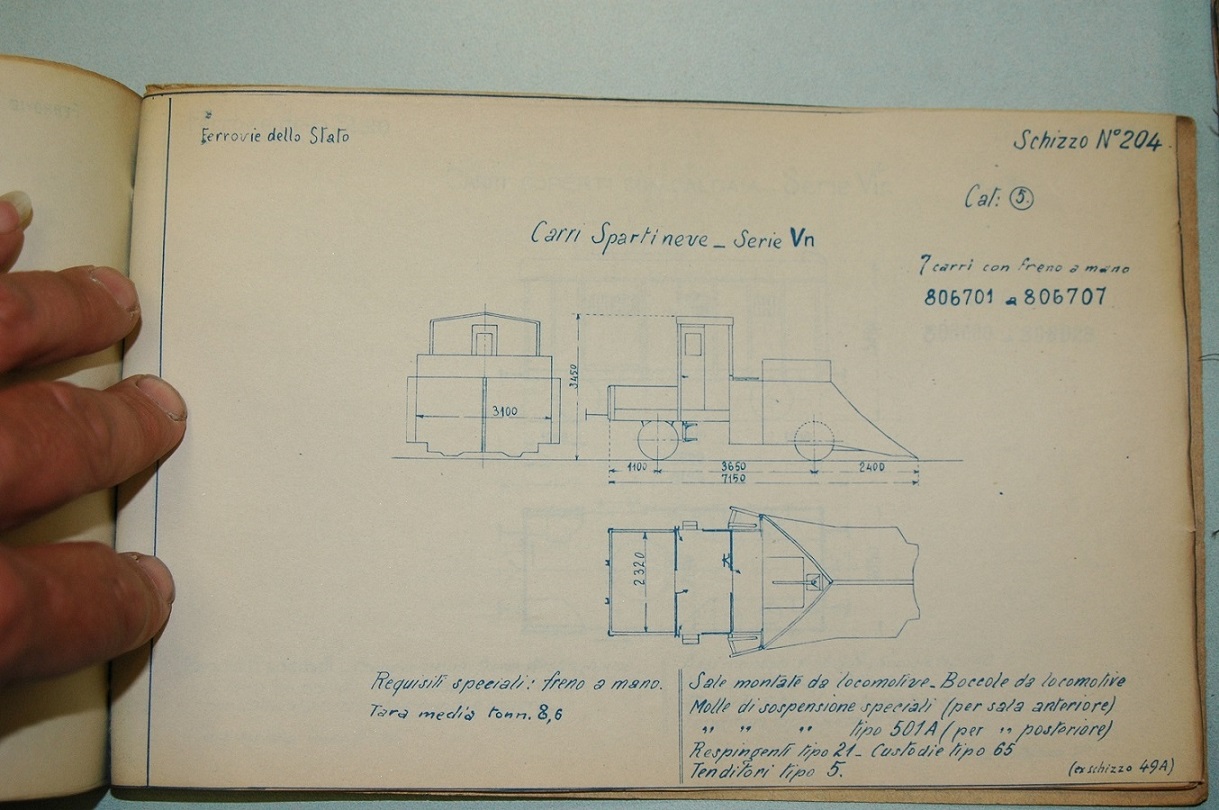 Ferrovie dello Stato
Schizzo N° 204.
Cat: 5.
Carri Spartineve _ Serie Vn
7 carri con freno a mano
806701 a 806707
3450
3100
1100 3650 2400
7150
2320
Requisiti speciali: freno a mano.
Tara media tonn. 8,6
Sale montate da locomotive_ Boccole da locomotive
Molle di sospensione speciali (per sala anteriore)
" " " tipo 501A (per " posteriore)
Respingenti tipo 21_ Custodie tipo 65
Tenditori tipo 5.
(ex schizzo 49A)